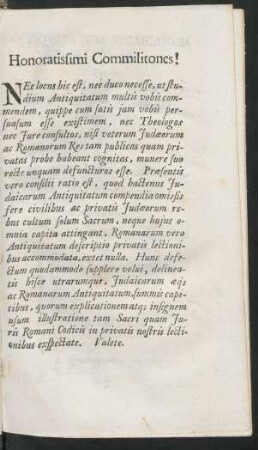 Honoratissimi Commilitones!
NEc locus hic est, nec duco necesse, ut stu-
dium Antiquitatum multis vobis com-
mendem, quippe cum satis jam vobis per-
suasum esse existimem, nec Theologos
nec Jure consultos, nisi veterum Judæorum
ac Romanorum Res tam publicas quam pri-
vatas probe habeant cognitas, munere suo
recte unquam defuncturos esse. Præsentis
vero consilii ratio est, quod hactenus Ju-
daicarum Antiquitatum compendia omissis
fere civilibus ac privatis Judæorum re-
bus cultum solum Sacrum, neque hujus o-
mnia capita attingant, Romanarum vero
Antiquitatum descriptio privatis lectioni-
bus accommodata, extet nulla. Hunc defe-
ctum quodammodo supplere volui, delinea-
tis hisce utrarumque, Judaicarum atq;
ac Romanarum Antiquitatum, summis capi-
tibus, quorum explicationem atq; insignem
usum illustratione tam Sacri quam Ju-
ris Romani Codicis in privatis nostris lecti-
onibus exspectate. Valete.